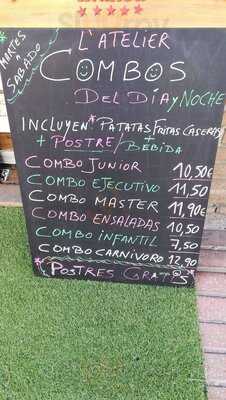 MARTES
A SABADO
L'ATELIER
COMBOS
DEL DIA y NOCHE
INCLUYEN* PATATAS FRITAS CASERAS
+ POSTRE / + BEBIDA
COMBO JUNIOR 10,50€
COMBO EJECUTIVO 11,50
COMBO MASTER 11,90€
COMBO ENSALADAS 10,50
COMBO INFANTIL 7,50
COMBO CARNIVORO 12,90
*POSTRES GRATIS*